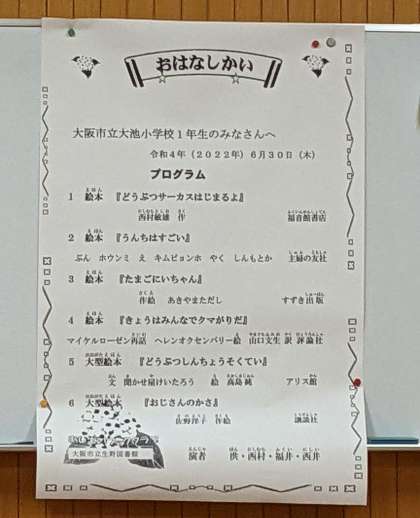 おはなしかい
大阪市立大池小学校1年生のみなさんへ
令和4年（2022年）6月30日（木）
プログラム
1 絵本 『どうぶつサーカスはじまるよ』
西村敏雄 作 福音館書店
2 絵本 『うんちはすごい』
ぶん ホウンミ え キムビョンホ やく しんもとか 主婦の友社
3 絵本 『たまごにいちゃん』
作絵 あきやまただし すずき出版
4 絵本 『きょうはみんなでクマがりだ』
マイケルローゼン再話 ヘレンオクセンバリー絵 山口文生 訳 評論社
5 大型絵本 『どうぶつしんちょうそくてい』
文 聞かせ屋けいたろう 絵 高島純 アリス館
6 大型絵本 『おじさんのかさ』
佐野洋子 作絵 講談社
大阪市立生野図書館
演者 洪・西村・福井・西井